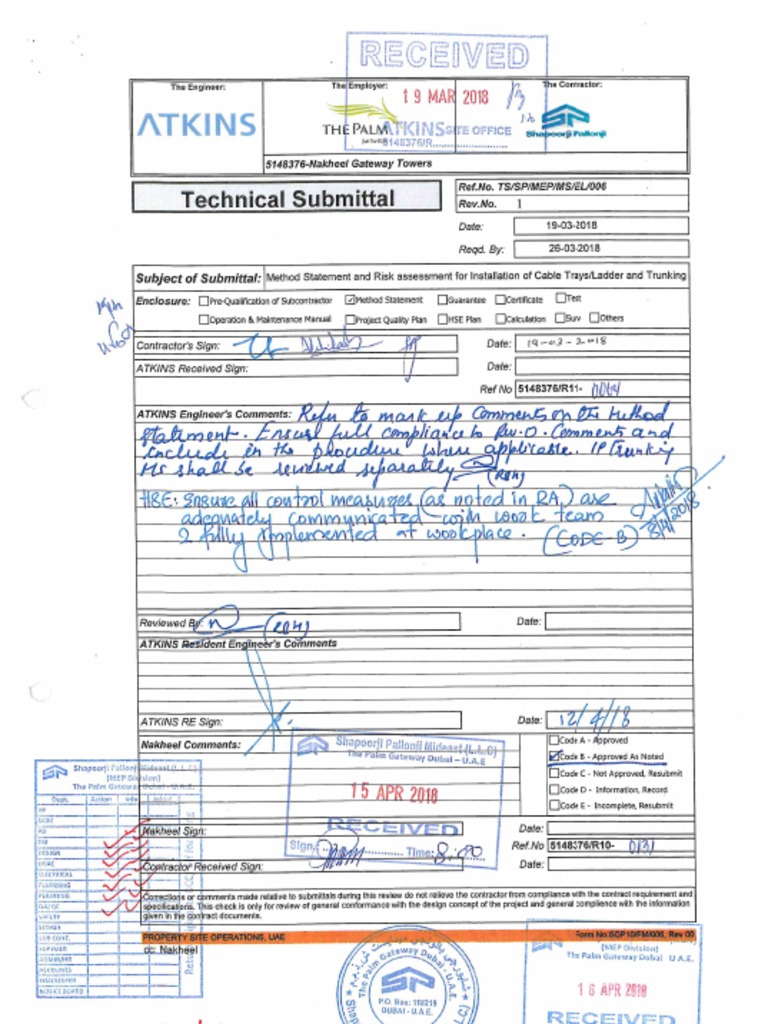 RECEIVED
The Engineer:
The Employer:
The Contractor:
19 MAR 2018
ATKINS
THE PALM
ATKINS SITE OFFICE
5148376/R
Shapoorji Pallonji
5148376-Nakheel Gateway Towers
Technical Submittal
Ref.No. TS/SP/MEP/MS/EL/006
Rev.No. 1
Date: 19-03-2018
Reqd. By: 26-03-2018
Subject of Submittal: Method Statement and Risk assessment for Installation of Cable Trays/Ladder and Trunking
Enclosure: Pre-Qualification of Subcontractor Method Statement Guarantee Certificate Test
Operation & Maintenance Manual Project Quality Plan HSE Plan Calculation Surv Others
Contractor's Sign: Date: 19-03-2018
ATKINS Received Sign: Date:
Ref No 5148376/R11-
ATKINS Engineer's Comments: Refer to mark up Comments on the Method
Statement. Ensure full compliance to Rev.0. Comments and
include in the procedure where applicable. IP Trunking
MS shall be reviewed separately
HSE: Ensure all control measures (as noted in RA) are
adequately communicated with work team
& fully implemented at workplace. (CODE-B)
8/4/2018
Reviewed By: Date:
ATKINS Resident Engineer's Comments
ATKINS RE Sign: Date: 12/4/18
Nakheel Comments:
Shapoorji Pallonji Mideast (L.L.C)
The Palm Gateway Dubai - U.A.E
15 APR 2018
RECEIVED
Sign: Time: 8:00
Code A - Approved
Code B - Approved As Noted
Code C - Not Approved, Resubmit
Code D - Information, Record
Code E - Incomplete, Resubmit
Nakheel Sign: Date:
Ref.No 5148376/R10- 0131
Contractor Received Sign: Date:
Shapoorji Pallonji Mideast (L.L.C)
(MEP Division)
The Palm Gateway Dubai - U.A.E.
Dept. Action Info
Corrections or comments made relative to submittals during this review do not relieve the contractor from compliance with the contract requirement and
specifications. This check is only for review of general conformance with the design concept of the project and general compliance with the information
given in the contract documents.
PROPERTY SITE OPERATIONS, UAE
Form No:SOP10/FM/006, Rev 00
cc: Nakheel
The Palm Gateway Dubai - U.A.E.
P.O. Box: 118219
DUBAI - U.A.E.
(MEP Division)
The Palm Gateway Dubai U.A.E.
16 APR 2018
RECEIVED